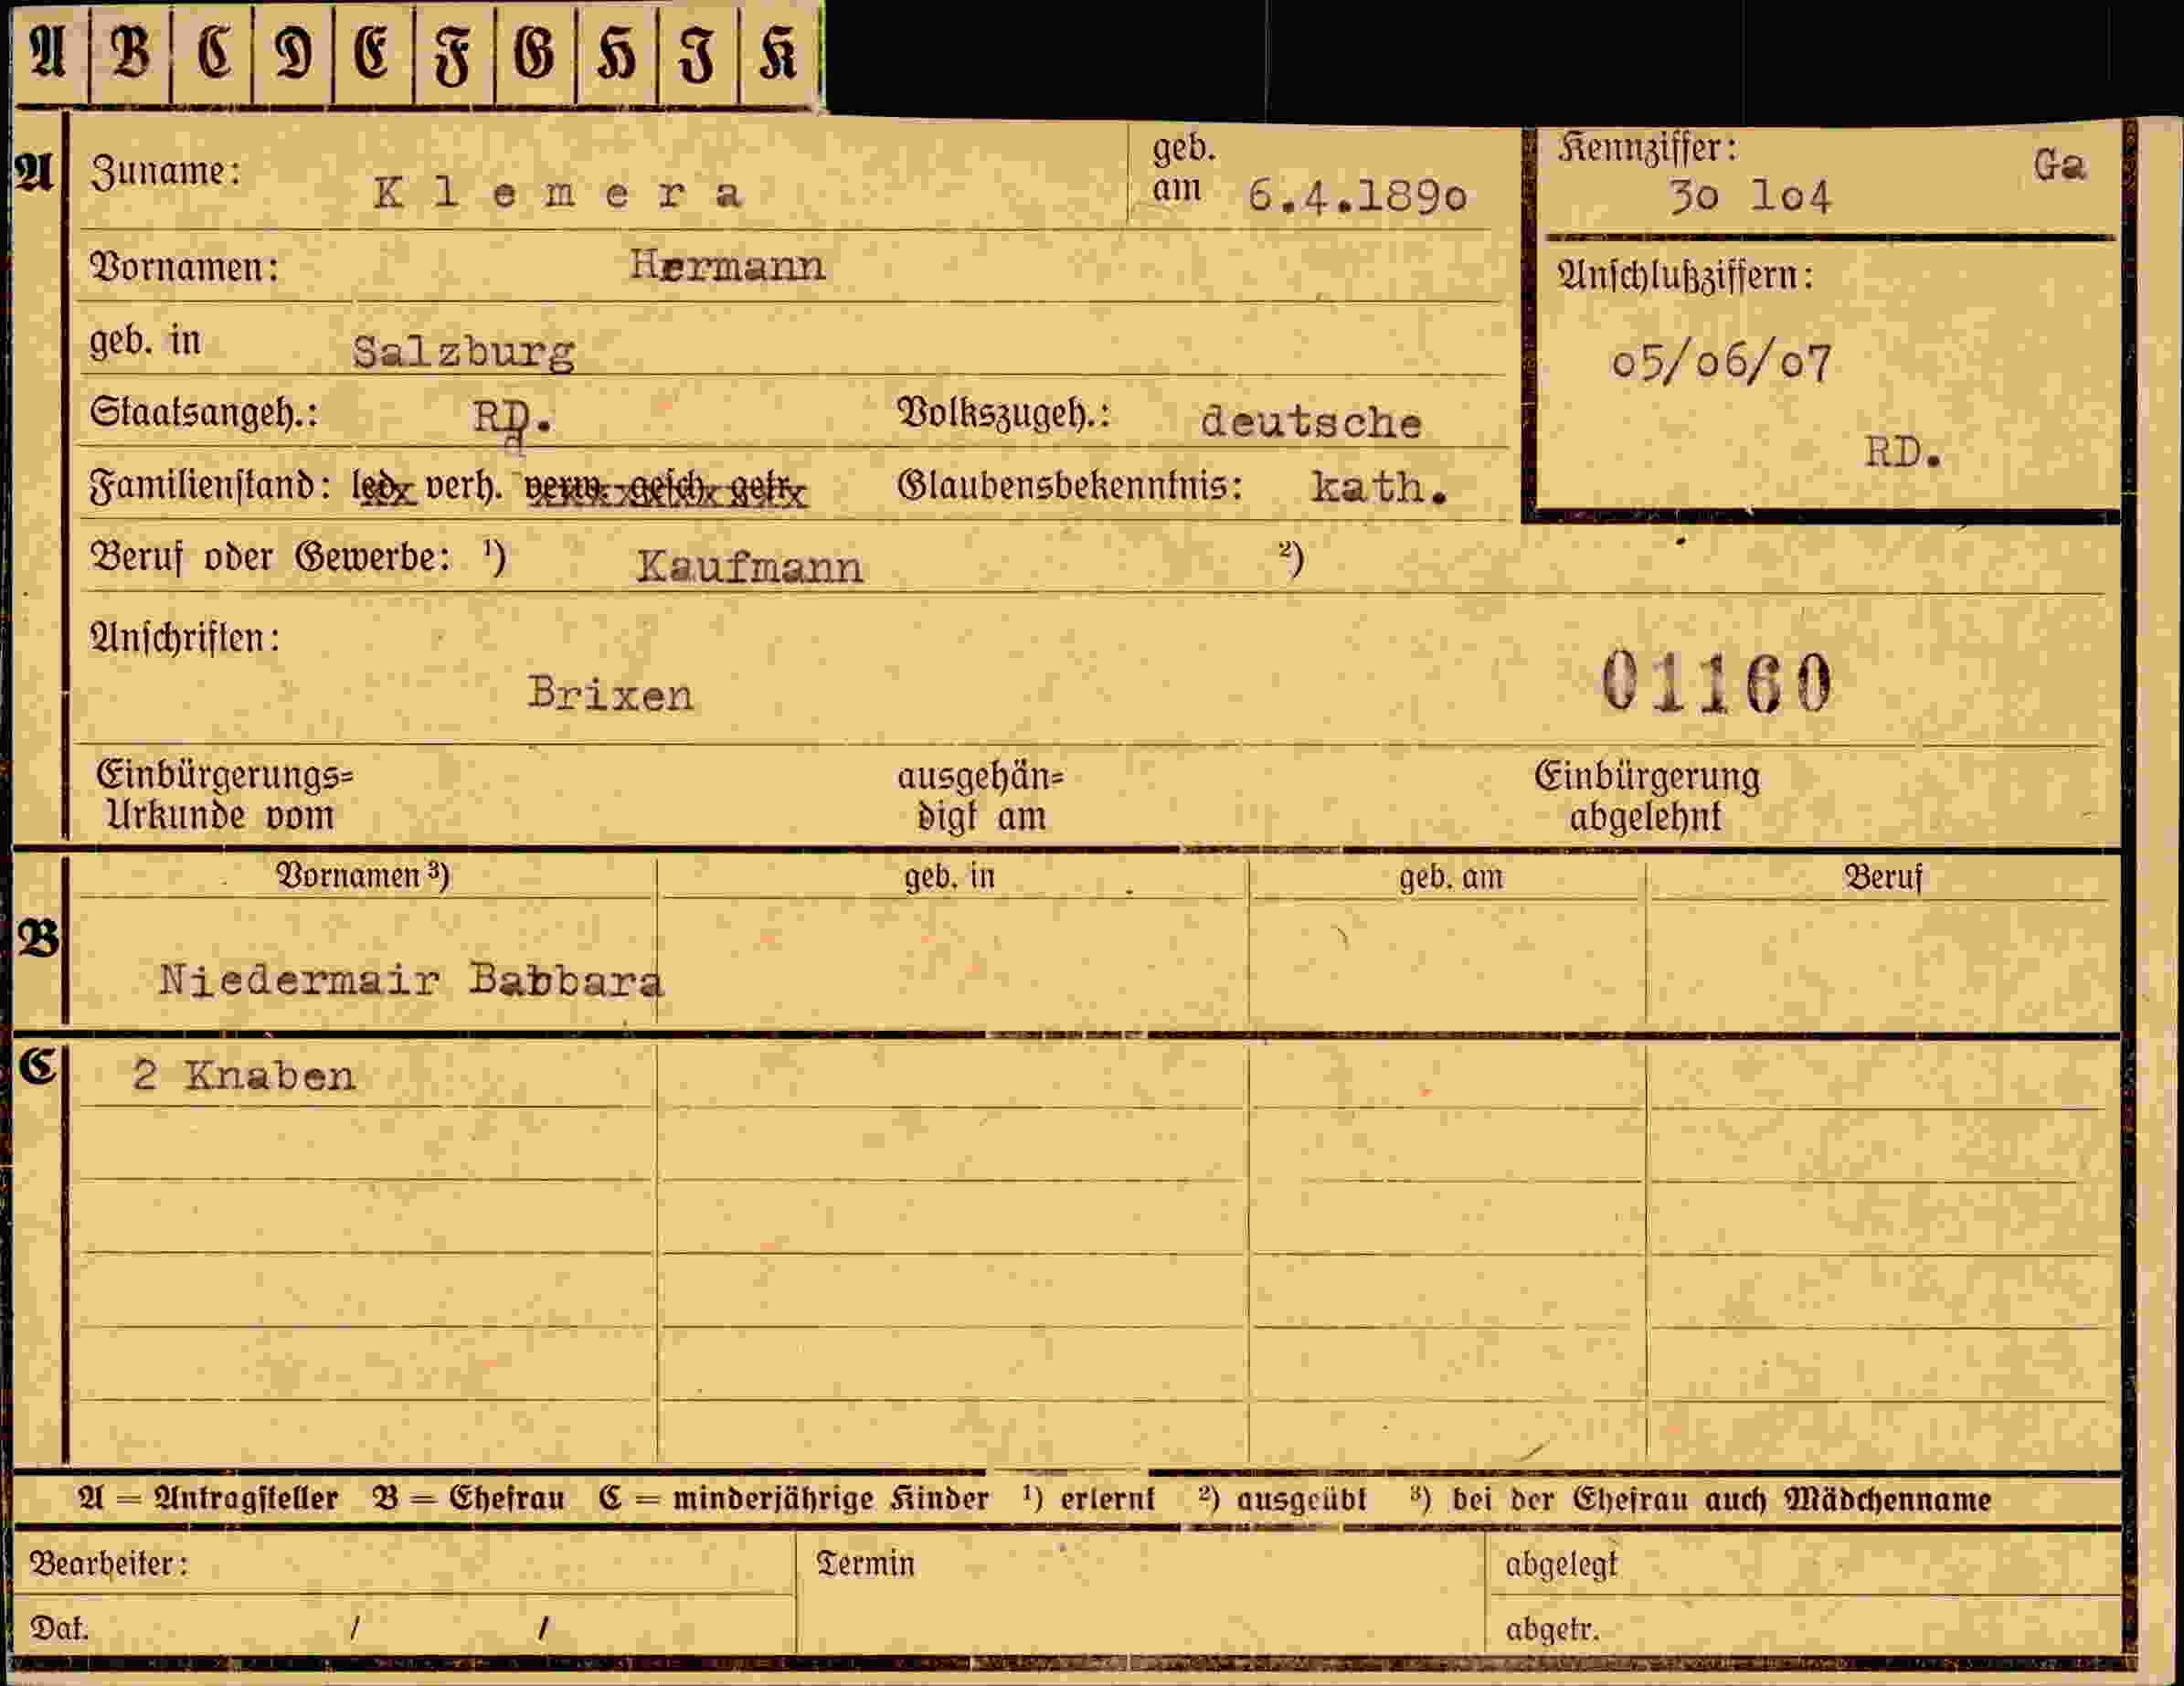 A B C D E F G H I K
A Zuname: Klemera geb. am 6.4.1890 Kennziffer: 30 104 Ga
Vornamen: Hermann
Anschlußziffern:
geb. in Salzburg
05/06/07
Staatsangeh.: RD. Volkszugeh.: deutsche
RD.
Familienstand: led. verh. verw. gesch. getr. Glaubensbekenntnis: kath.
Beruf oder Gewerbe: ¹) Kaufmann ²)
Anschriften:
Brixen 01160
Einbürgerungs= ausgehän= Einbürgerung
Urkunde vom digt am abgelehnt
Vornamen ³) geb. in geb. am Beruf
B
Niedermair Babbara
C 2 Knaben
A = Antragsteller B = Ehefrau C = minderjährige Kinder ¹) erlernt ²) ausgeübt ³) bei der Ehefrau auch Mädchenname
Bearbeiter: Termin abgelegt
Dat. / / abgetr.